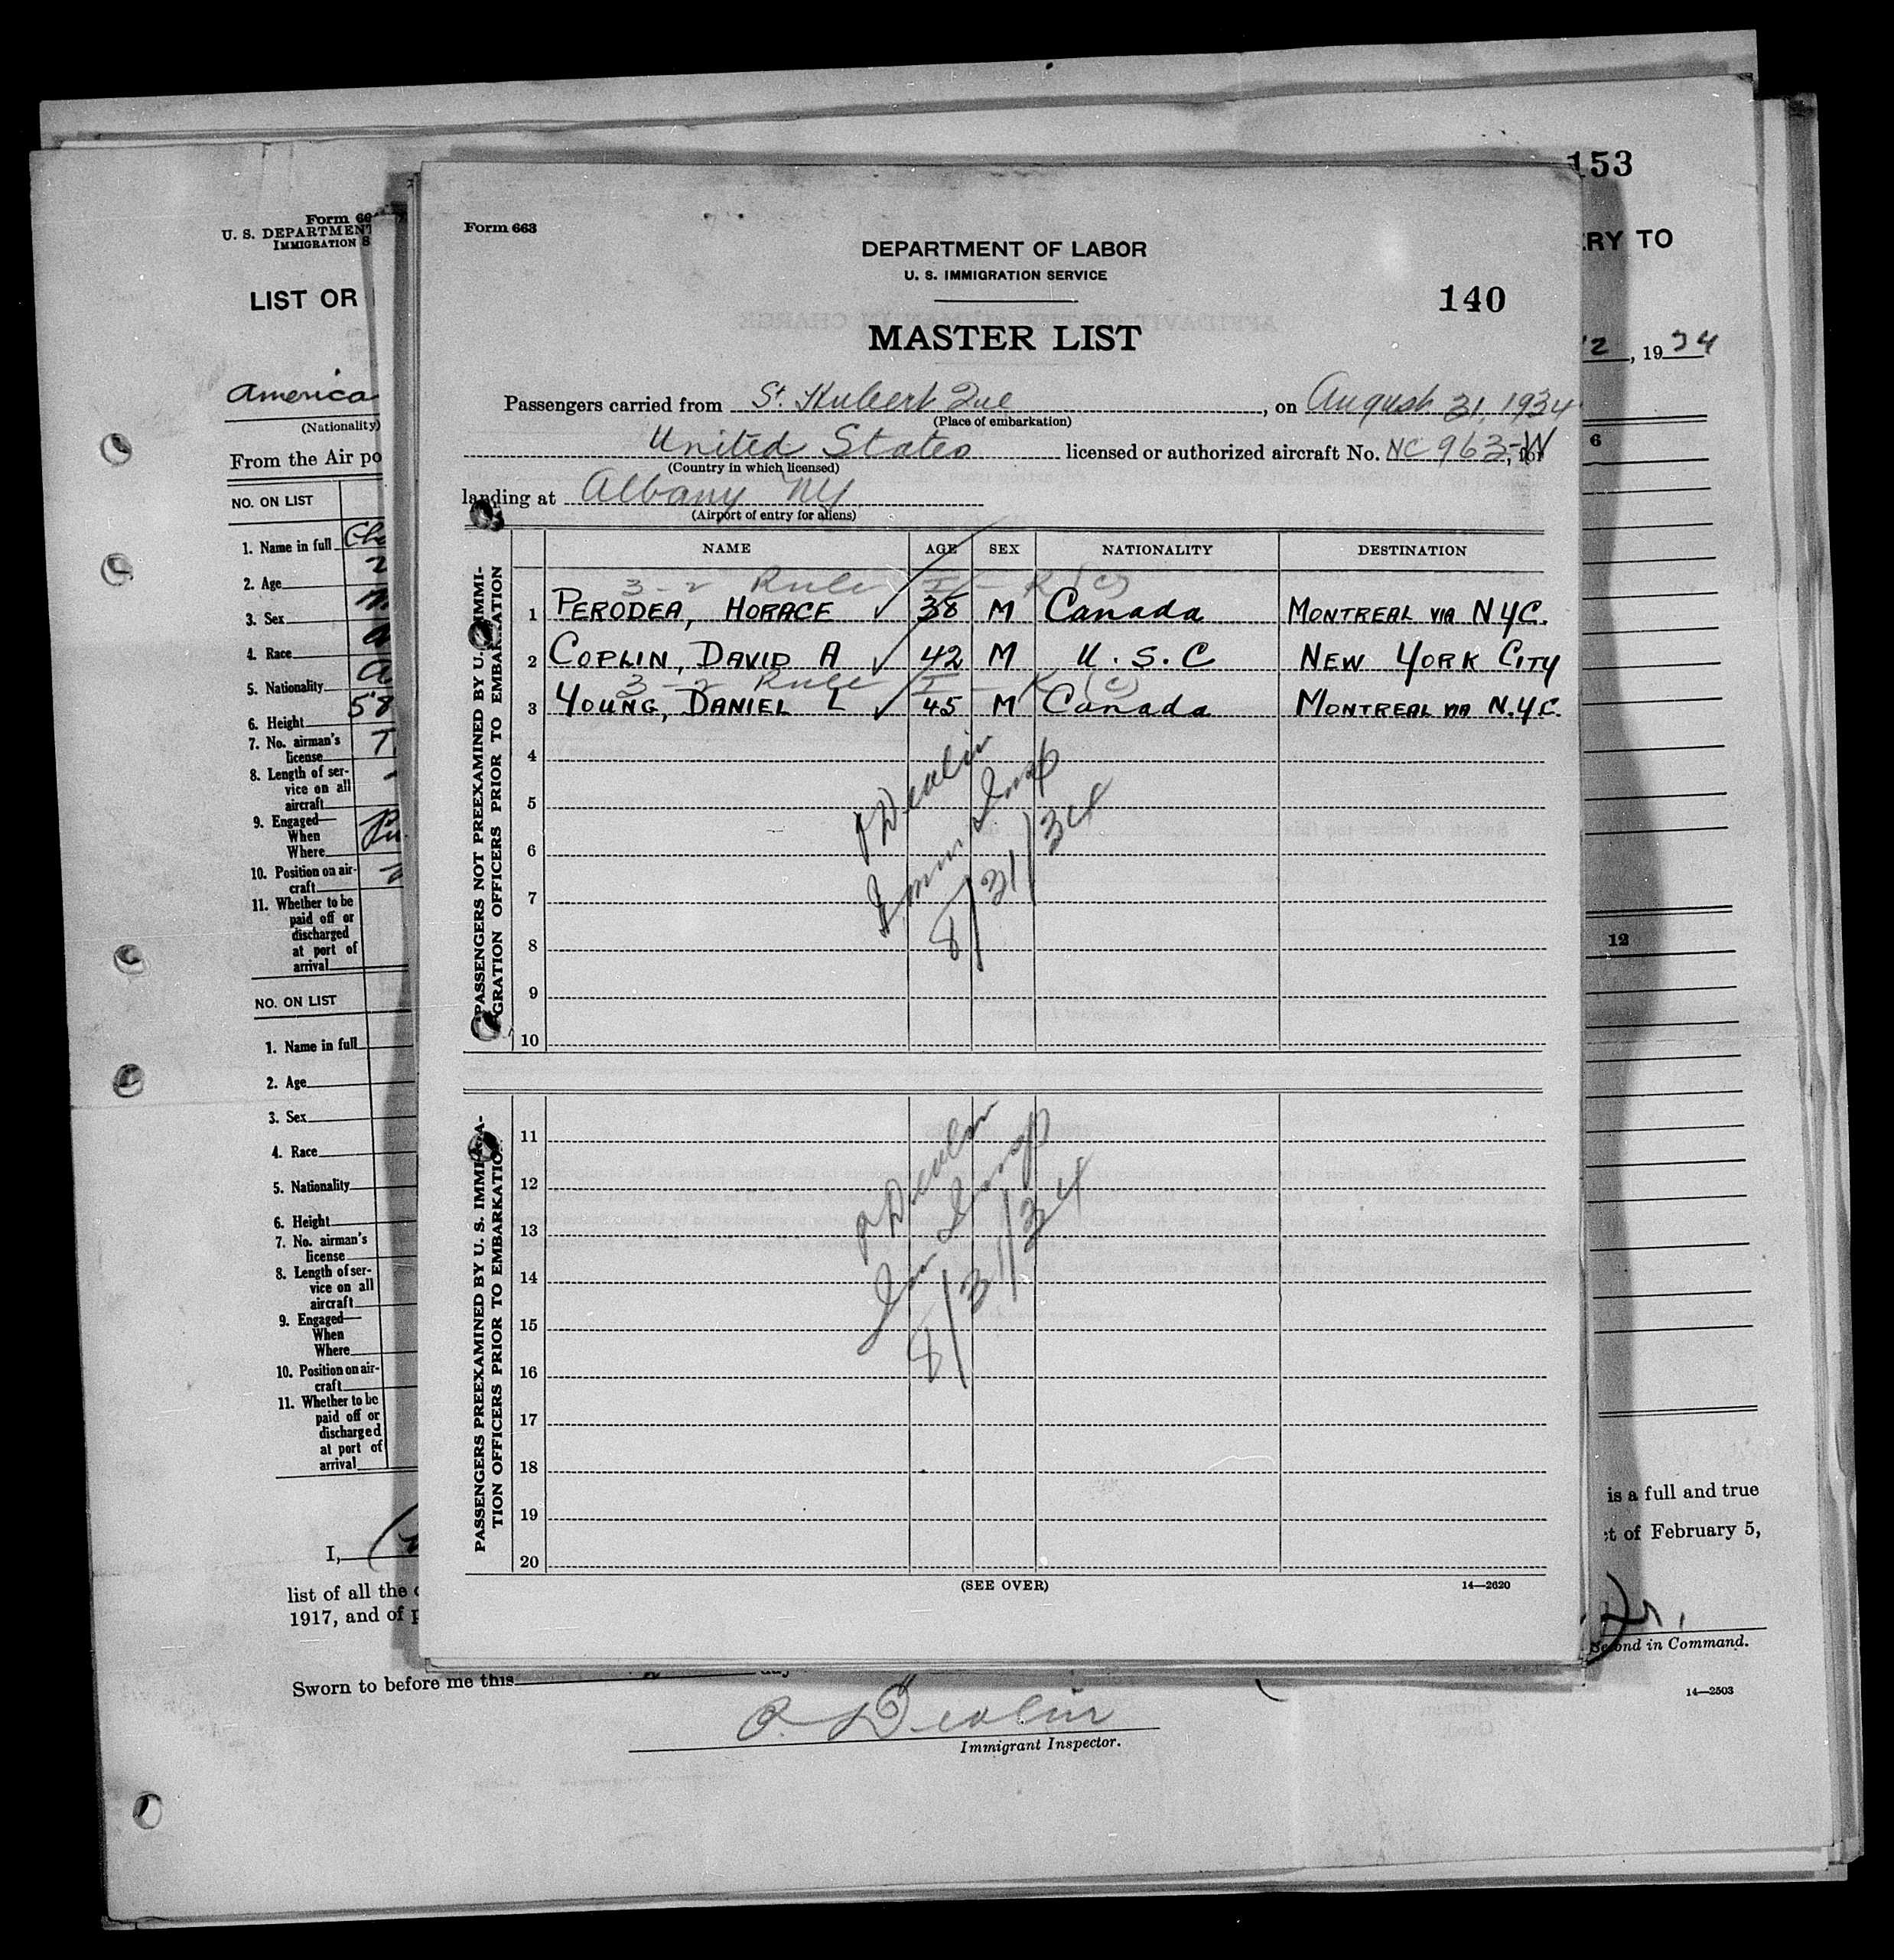 153
RY TO
2, 1934
6
12
is a full and true
t of February 5,
Second in Command.
14—2503
Form 66
U. S. DEPARTMENT
IMMIGRATION S
LIST OR
America
(Nationality)
From the Air po
NO. ON LIST
1. Name in full
2. Age
3. Sex
4. Race
5. Nationality
6. Height 58
7. No. airman's
license
8. Length of ser-
vice on all
aircraft
9. Engaged—
When
Where
10. Position on air-
craft
11. Whether to be
paid off or
discharged
at port of
arrival
NO. ON LIST
1. Name in full
2. Age
3. Sex
4. Race
5. Nationality
6. Height
7. No. airman's
license
8. Length of ser-
vice on all
aircraft
9. Engaged—
When
Where
10. Position on air-
craft
11. Whether to be
paid off or
discharged
at port of
arrival
I,
list of all the
1917, and of p
Sworn to before me this
Immigrant Inspector.
Form 663
DEPARTMENT OF LABOR
U. S. IMMIGRATION SERVICE
140
MASTER LIST
Passengers carried from St. Hubert Que, on August 31, 1934
(Place of embarkation)
United States licensed or authorized aircraft No. NC 963-W, for
(Country in which licensed)
landing at Albany NY
(Airport of entry for aliens)
PASSENGERS NOT PREEXAMINED BY U. S. IMMI-
GRATION OFFICERS PRIOR TO EMBARKATION
NAME AGE SEX NATIONALITY DESTINATION
3-2 Rule I-R (c)
1 PERODEA, HORACE ✓ 38 M Canada MONTREAL VIA NYC.
2 COPLIN, DAVID A ✓ 42 M U.S.C NEW YORK CITY
3-2 Rule I-R (c)
3 YOUNG, DANIEL L ✓ 45 M Canada MONTREAL VIA N.Y.C.
4
5
6
7
8
9
10
P Devlin
Immn Insp
8/31/34
PASSENGERS PREEXAMINED BY U. S. IMMIGRA-
TION OFFICERS PRIOR TO EMBARKATION
11
12
13
14
15
16
17
18
19
20
P Devlin
Imm Insp
8/31/34
(SEE OVER)
14—2620